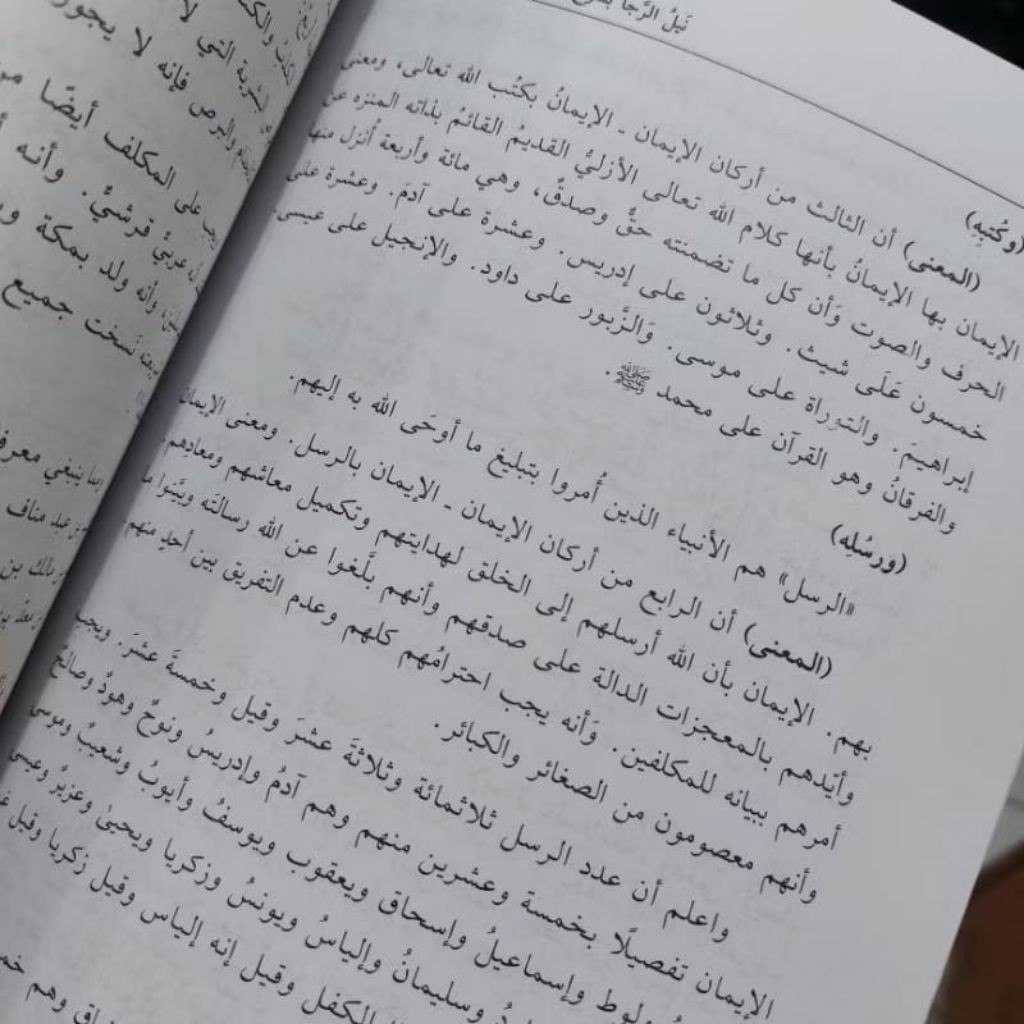 نَيلُ الرَّجا
(وكُتبِه)
(المعنى) أن الثالث من أركان الإيمان - الإيمانُ بكتُب الله تعالى، ومعنى
الإيمان بها الإيمانُ بأنها كلام الله تعالى الأزليُّ القديمُ القائمُ بذاته المنزه عن
الحرف والصوت وَأن كل ما تضمنته حقٌّ وصدقٌ، وهي مائة وأربعة أُنزل منها
خمسون عَلَى شيث. وثلاثون على إدريس. وعشرة على آدمَ. وعشرة على
إبراهيمَ. والتوراة على موسى. وَالزَّبور على داود. والإنجيل على عيسى
والفرقانُ وهو القرآن على محمد ﷺ.
(ورسُلِه)
«الرسل» هم الأنبياء الذين أُمروا بتبليغ ما أوحَى الله به إليهم.
(المعنى) أن الرابع من أركان الإيمان - الإيمان بالرسل. ومعنى الإيمان
بهم. الإيمان بأن الله أرسلهم إلى الخلق لهدايتهم وتكميل معاشهم ومعادِهم.
وأيّدهم بالمعجزات الدالة على صدقهم وأنهم بلَّغوا عن الله رسالتَه وبيَّنوا ما
أمرهم ببيانه للمكلفين. وَأنه يجب احترامُهم كلهم وعدم التفريق بين أحدٍ منهم.
وأنهم معصومون من الصغائر والكبائر.
واعلم أن عدد الرسل ثلاثمائة وثلاثةَ عشرَ وقيل وخمسةَ عشرَ. ويجب
الإيمان تفصيلًا بخمسة وعشرين منهم وهم آدمُ وإدريسُ ونوحٌ وهودٌ وصالحٌ
ولوط وإسماعيلُ وإسحاق ويعقوب ويوسفُ وأيوبُ وشعيبٌ وموسى
وسليمانُ وإلياسُ ويونسُ وزكريا ويحيىٰ وعزيرٌ وعيسى
الكفل وقيل إنه إلياس وقيل زكريا وقيل
وهم
البشرية التي لا
والبرص فإنه لا يجوز
يجب على المكلف أيضًا من
عربيٌّ قرشيٌّ. وأنه
وأنه ولد بمكة
نسخت جميع
ينبغي معرفة
عبد مناف
مالك بن